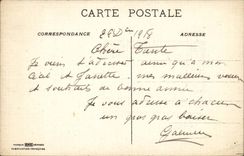 CARTE POSTALE
CORRESPONDANCE
ADRESSE
29 Dbre 1918
Chère Tante
Je viens t'adresser ainsi qu'à mon
et Janette mes meilleurs voeux
et souhaits de bonne année
Je vous adresse à chacun
un gros gros baiser